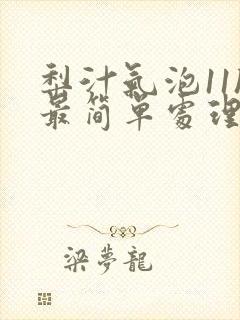 梨汁氣泡11
最简單處理
梁夢龍